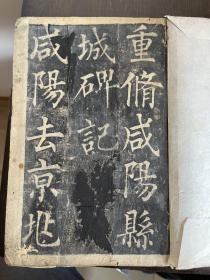 重脩咸陽縣
城碑記
咸陽去京地